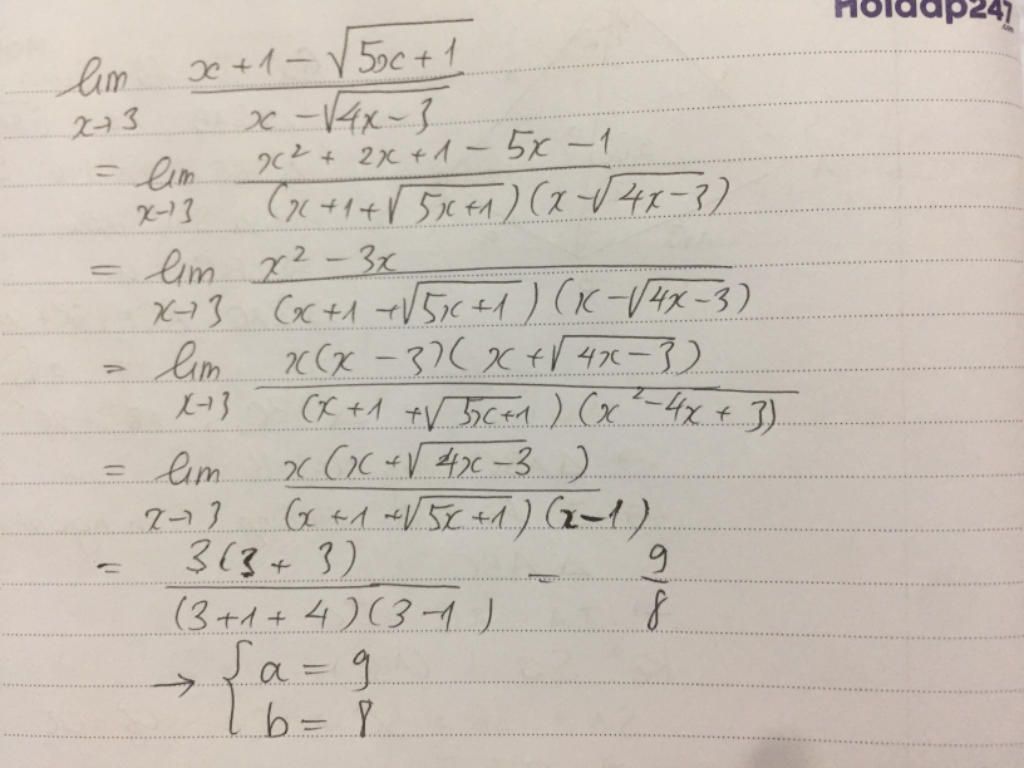 Hoidap247
lim x→3 (x + 1 − √(5x + 1)) / (x − √(4x − 3))
= lim x→3 (x² + 2x + 1 − 5x − 1) / ((x + 1 + √(5x + 1))(x − √(4x − 3)))
= lim x→3 (x² − 3x) / ((x + 1 + √(5x + 1))(x − √(4x − 3)))
= lim x→3 (x(x − 3)(x + √(4x − 3))) / ((x + 1 + √(5x + 1))(x² − 4x + 3))
= lim x→3 (x(x + √(4x − 3))) / ((x + 1 + √(5x + 1))(x − 1))
= (3(3 + 3)) / ((3 + 1 + 4)(3 − 1)) = 9/8
→ { a = 9
b = 8